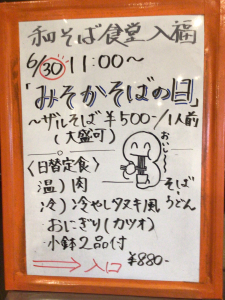 和そば食堂 入福
6/30 11:00〜
「みそかそばの日」
〜ザルそば ¥500-/1人前
(大盛可)
おいしい〜
〈日替定食〉
温)肉
冷)冷やしタヌキ風
そば・うどん
おにぎり(カツオ)
小鉢2品付
¥880-
入口